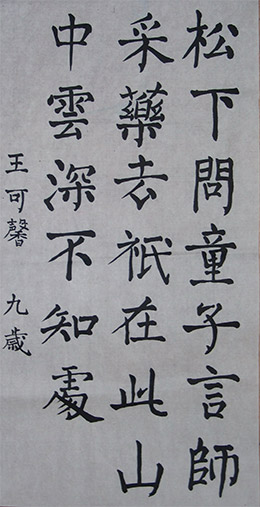 松下問童子言師
采藥去祇在此山
中雲深不知處
王可馨 九歲